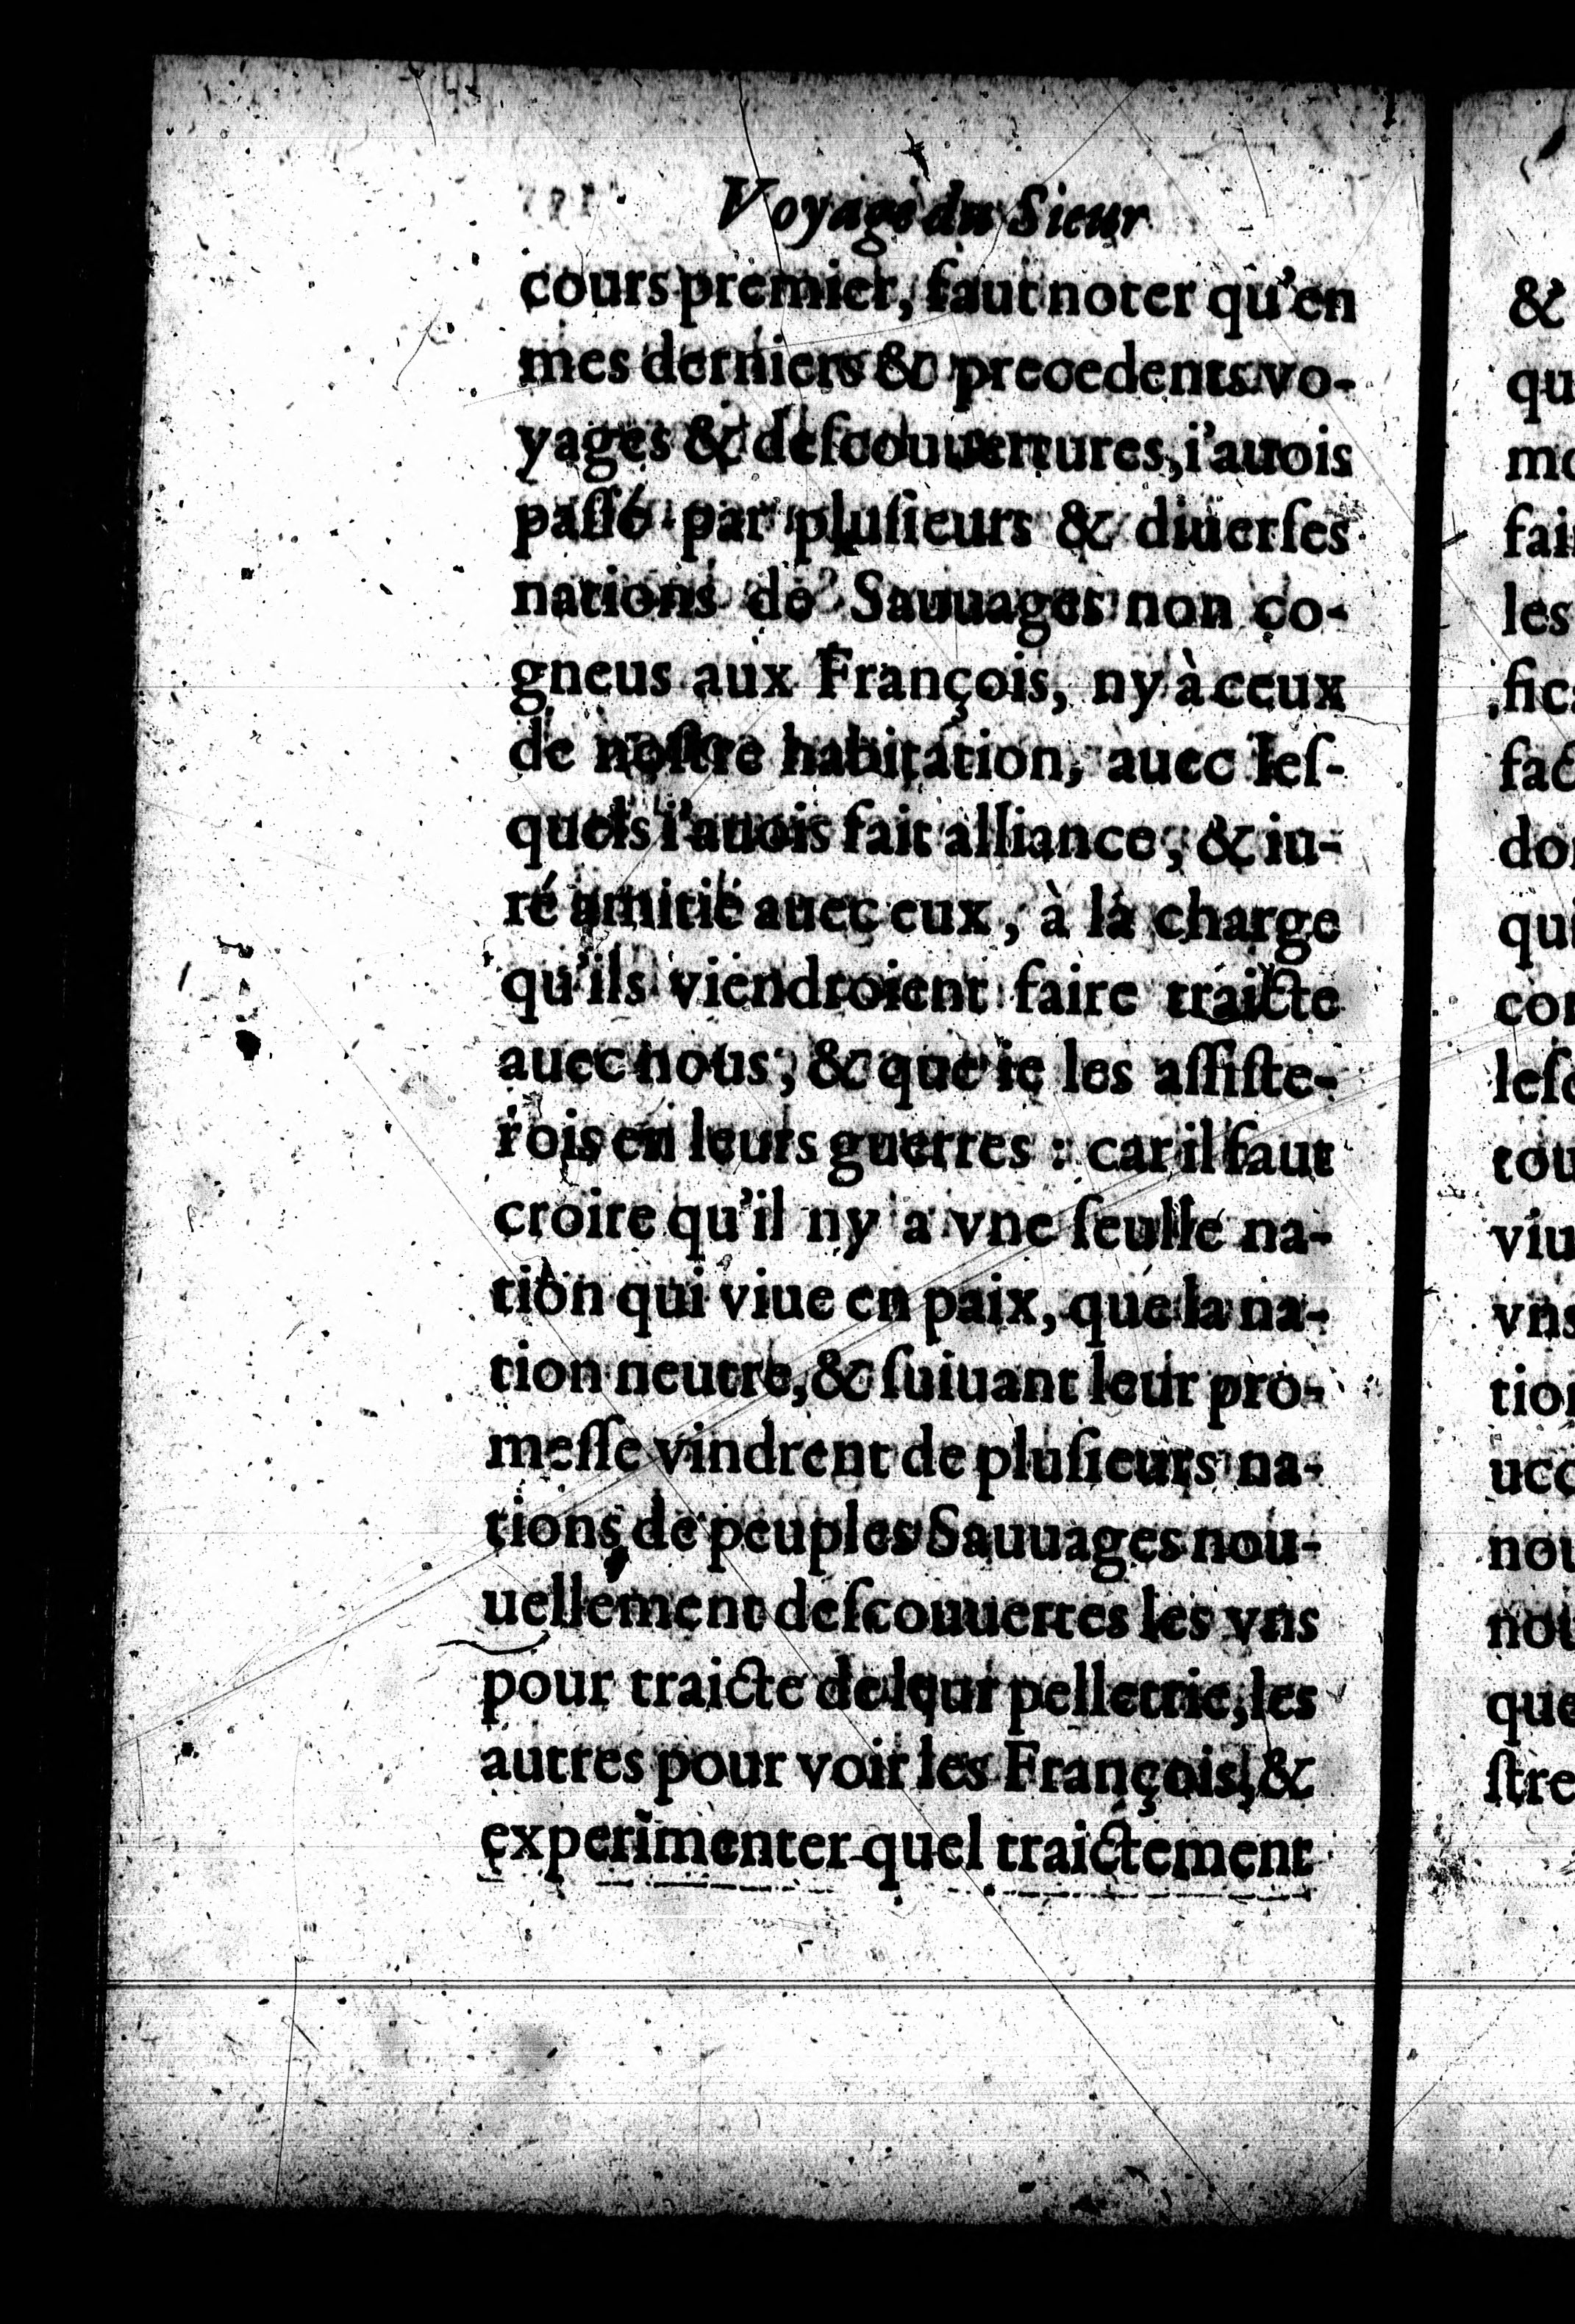 Voyage du Sieur
cours premier, faut noter qu'en
mes derniers & precedents vo-
yages & deſcouuertures, i'auois
paſſé par pluſieurs & diuerſes
nations de Sauuages non co-
gneus aux François, ny à ceux
de noſtre habitation, auec leſ-
quels i'auois fait alliance, & iu-
ré amitié auec eux, à la charge
qu'ils viendroient faire traicte
auec nous, & que ie les aſſiſte-
rois en leurs guerres : car il faut
croire qu'il ny a vne ſeulle na-
tion qui viue en paix, que la na-
tion neutre, & ſuiuant leur pro-
meſſe vindrent de pluſieurs na-
tions de peuples Sauuages nou-
uellement deſcouuertes les vns
pour traicte de leur pelletrie, les
autres pour voir les François, &
experimenter quel traictement
&
qu
mo
fai
les
fic
fac
do
qui
con
leſ
tou
viu
vns
tion
uec
nou
nou
que
ſtre